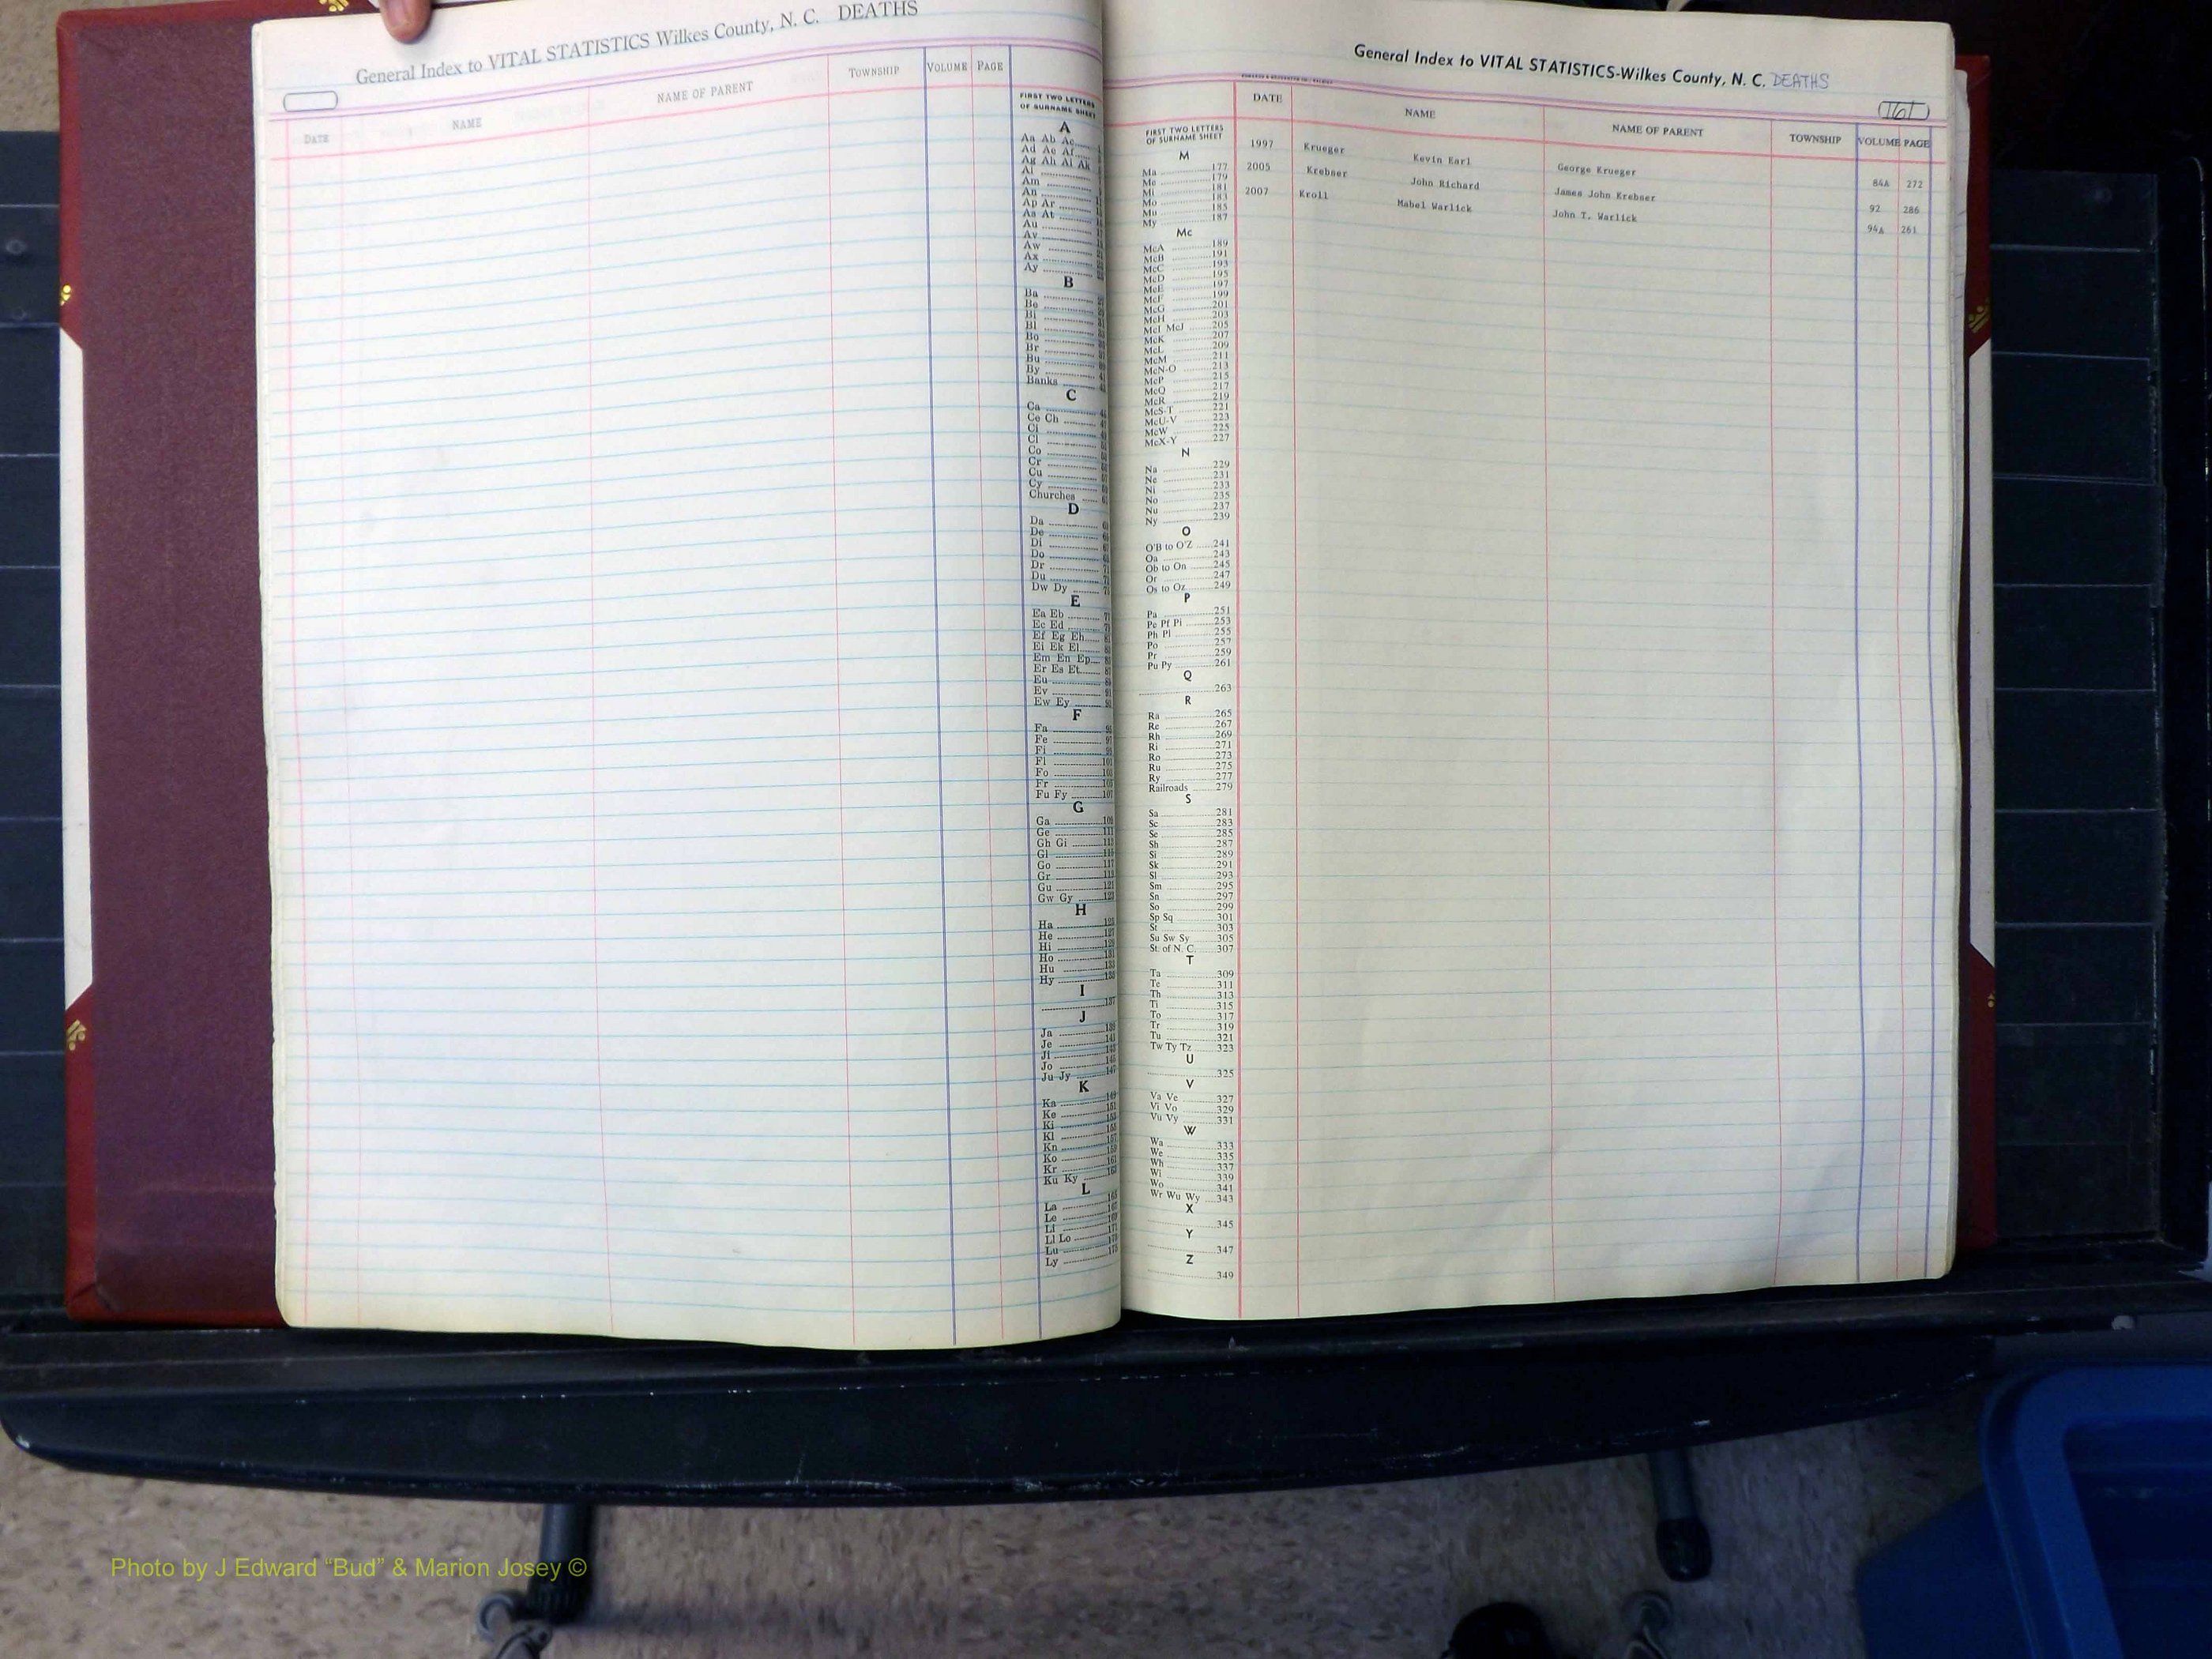 General Index to VITAL STATISTICS Wilkes County, N. C. DEATHS
DATE NAME NAME OF PARENT TOWNSHIP VOLUME PAGE
FIRST TWO LETTERS
OF SURNAME SHEET
A
Aa Ab Ac
Ad Ae Af
Ag Ah Ai Ak
Al
Am
An
Ap Ar
As At
Au
Av
Aw
Ax
Ay
B
Ba
Be
Bi
Bl
Bo
Br
Bu
By
Banks
C
Ca
Ce Ch
Ci
Cl
Co
Cr
Cu
Cy
Churches
D
Da
De
Di
Do
Dr
Du
Dw Dy
E
Ea Eb
Ec Ed
Ef Eg Eh
Ei Ek El
Em En Ep
Er Es Et
Eu
Ev
Ew Ey
F
Fa
Fe
Fi
Fl 101
Fo 103
Fr 105
Fu Fy 107
G
Ga 109
Ge 111
Gh Gi 113
Gl 115
Go 117
Gr 119
Gu 121
Gw Gy 123
H
Ha 125
He 127
Hi 129
Ho 131
Hu 133
Hy 135
I
137
J
Ja 139
Je 141
Ji 143
Jo 145
Ju Jy 147
K
Ka 149
Ke 151
Ki 153
Kl 155
Kn 157
Ko 159
Kr 161
Ku Ky 163
L
La 165
Le 167
Li 169
Ll Lo 171
Lu 173
Ly 175
General Index to VITAL STATISTICS-Wilkes County, N. C. DEATHS
161
DATE NAME NAME OF PARENT TOWNSHIP VOLUME PAGE
1997 Krueger Kevin Earl George Krueger 84A 272
2005 Krebser John Richard James John Krebser 92 286
2007 Kroll Mabel Warlick John T. Warlick 94A 261
FIRST TWO LETTERS
OF SURNAME SHEET
M
Ma 177
Me 179
Mi 181
Mo 183
Mu 185
My 187
Mc
McA 189
McB 191
McC 193
McD 195
McE 197
McF 199
McG 201
McH 203
McI McJ 205
McK 207
McL 209
McM 211
McN-O 213
McP 215
McQ 217
McR 219
McS-T 221
McU-V 223
McW 225
McX-Y 227
N
Na 229
Ne 231
Ni 233
No 235
Nu 237
Ny 239
O
O'B to O'Z 241
Oa 243
Ob to On 245
Or 247
Os to Oz 249
P
Pa 251
Pe Pf Pi 253
Ph Pl 255
Po 257
Pr 259
Pu Py 261
Q
263
R
Ra 265
Re 267
Rh 269
Ri 271
Ro 273
Ru 275
Ry 277
Railroads 279
S
Sa 281
Sc 283
Se 285
Sh 287
Si 289
Sk 291
Sl 293
Sm 295
Sn 297
So 299
Sp Sq 301
St 303
Su Sw Sy 305
St. of N. C. 307
T
Ta 309
Te 311
Th 313
Ti 315
To 317
Tr 319
Tu 321
Tw Ty Tz 323
U
325
V
Va Ve 327
Vi Vo 329
Vu Vy 331
W
Wa 333
We 335
Wh 337
Wi 339
Wo 341
Wr Wu Wy 343
X
345
Y
347
Z
349
Photo by J Edward “Bud” & Marion Josey ©